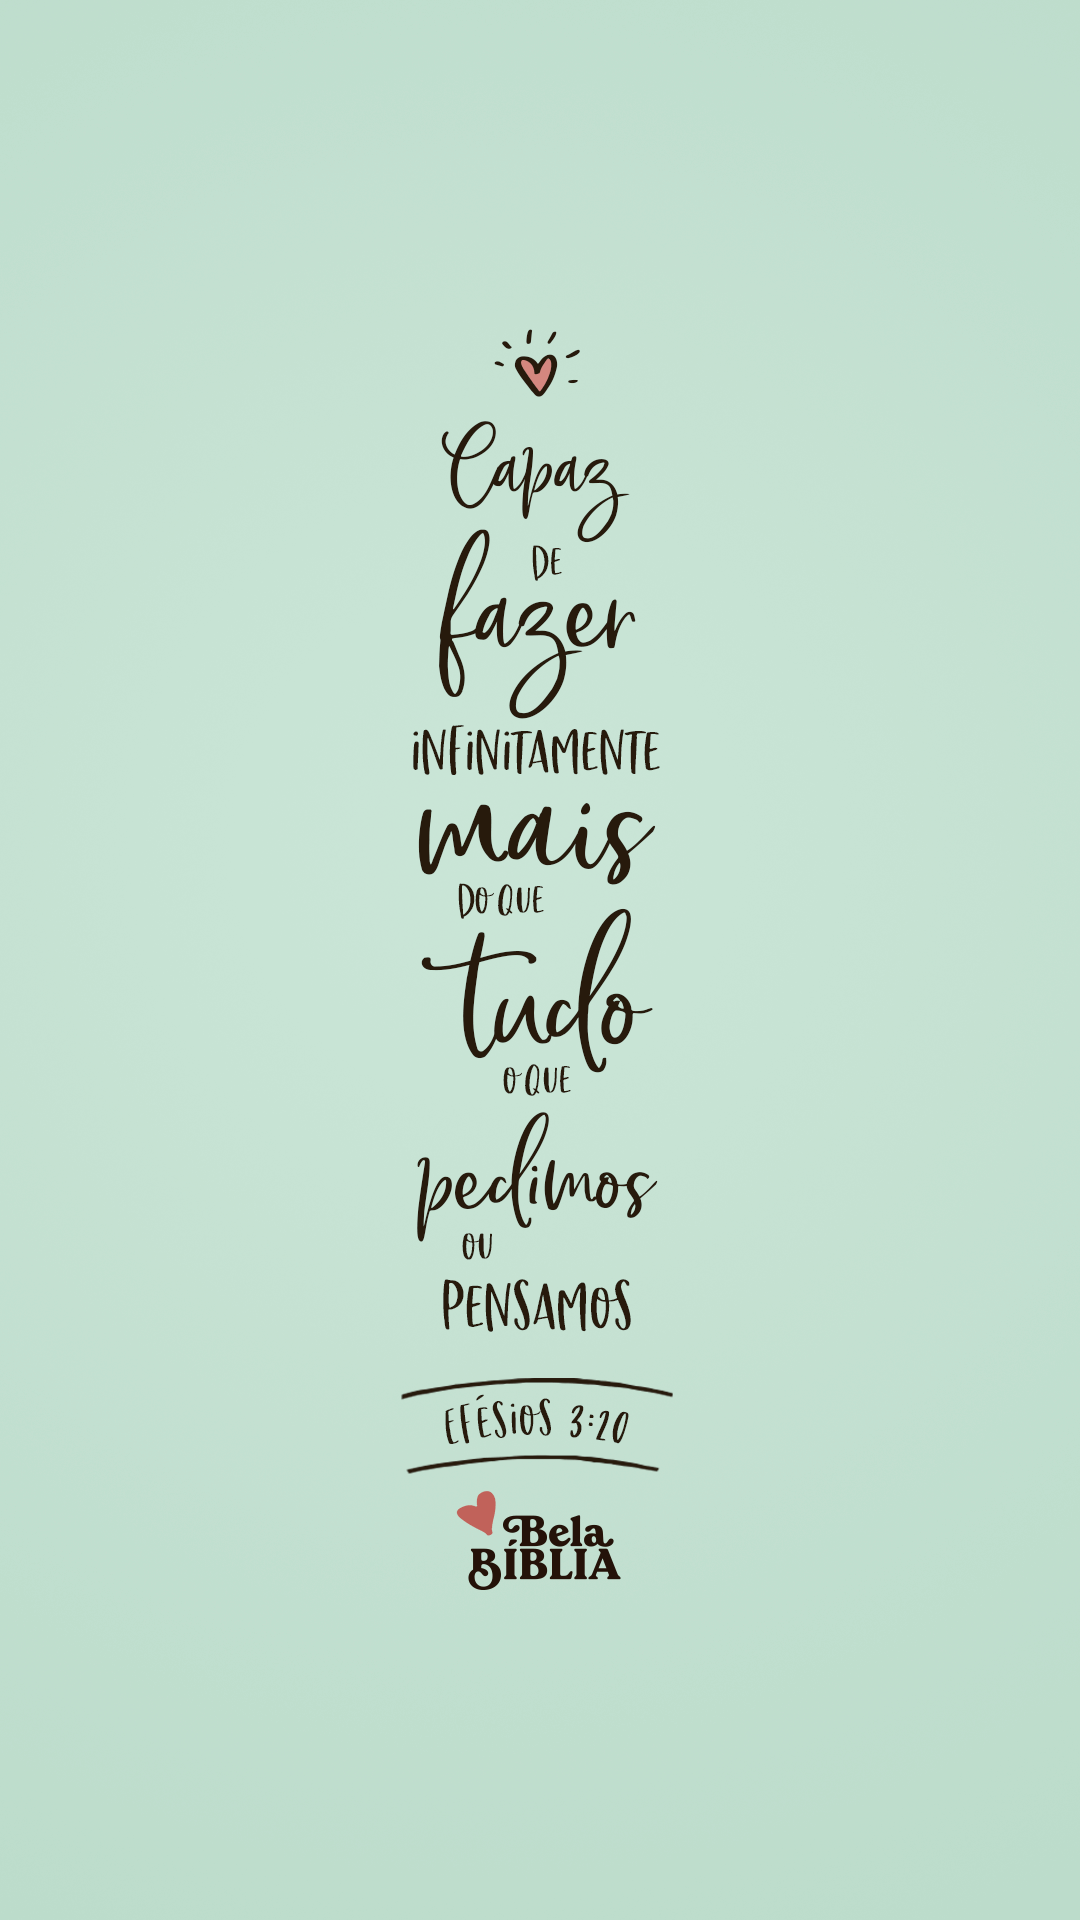 Capaz
DE
fazer
iNFiNiTAMENTE
mais
DO QUE
tudo
O QUE
pedimos
OU
PENSAMOS
EFÉSiOS 3:20
Bela
BÍBLIA